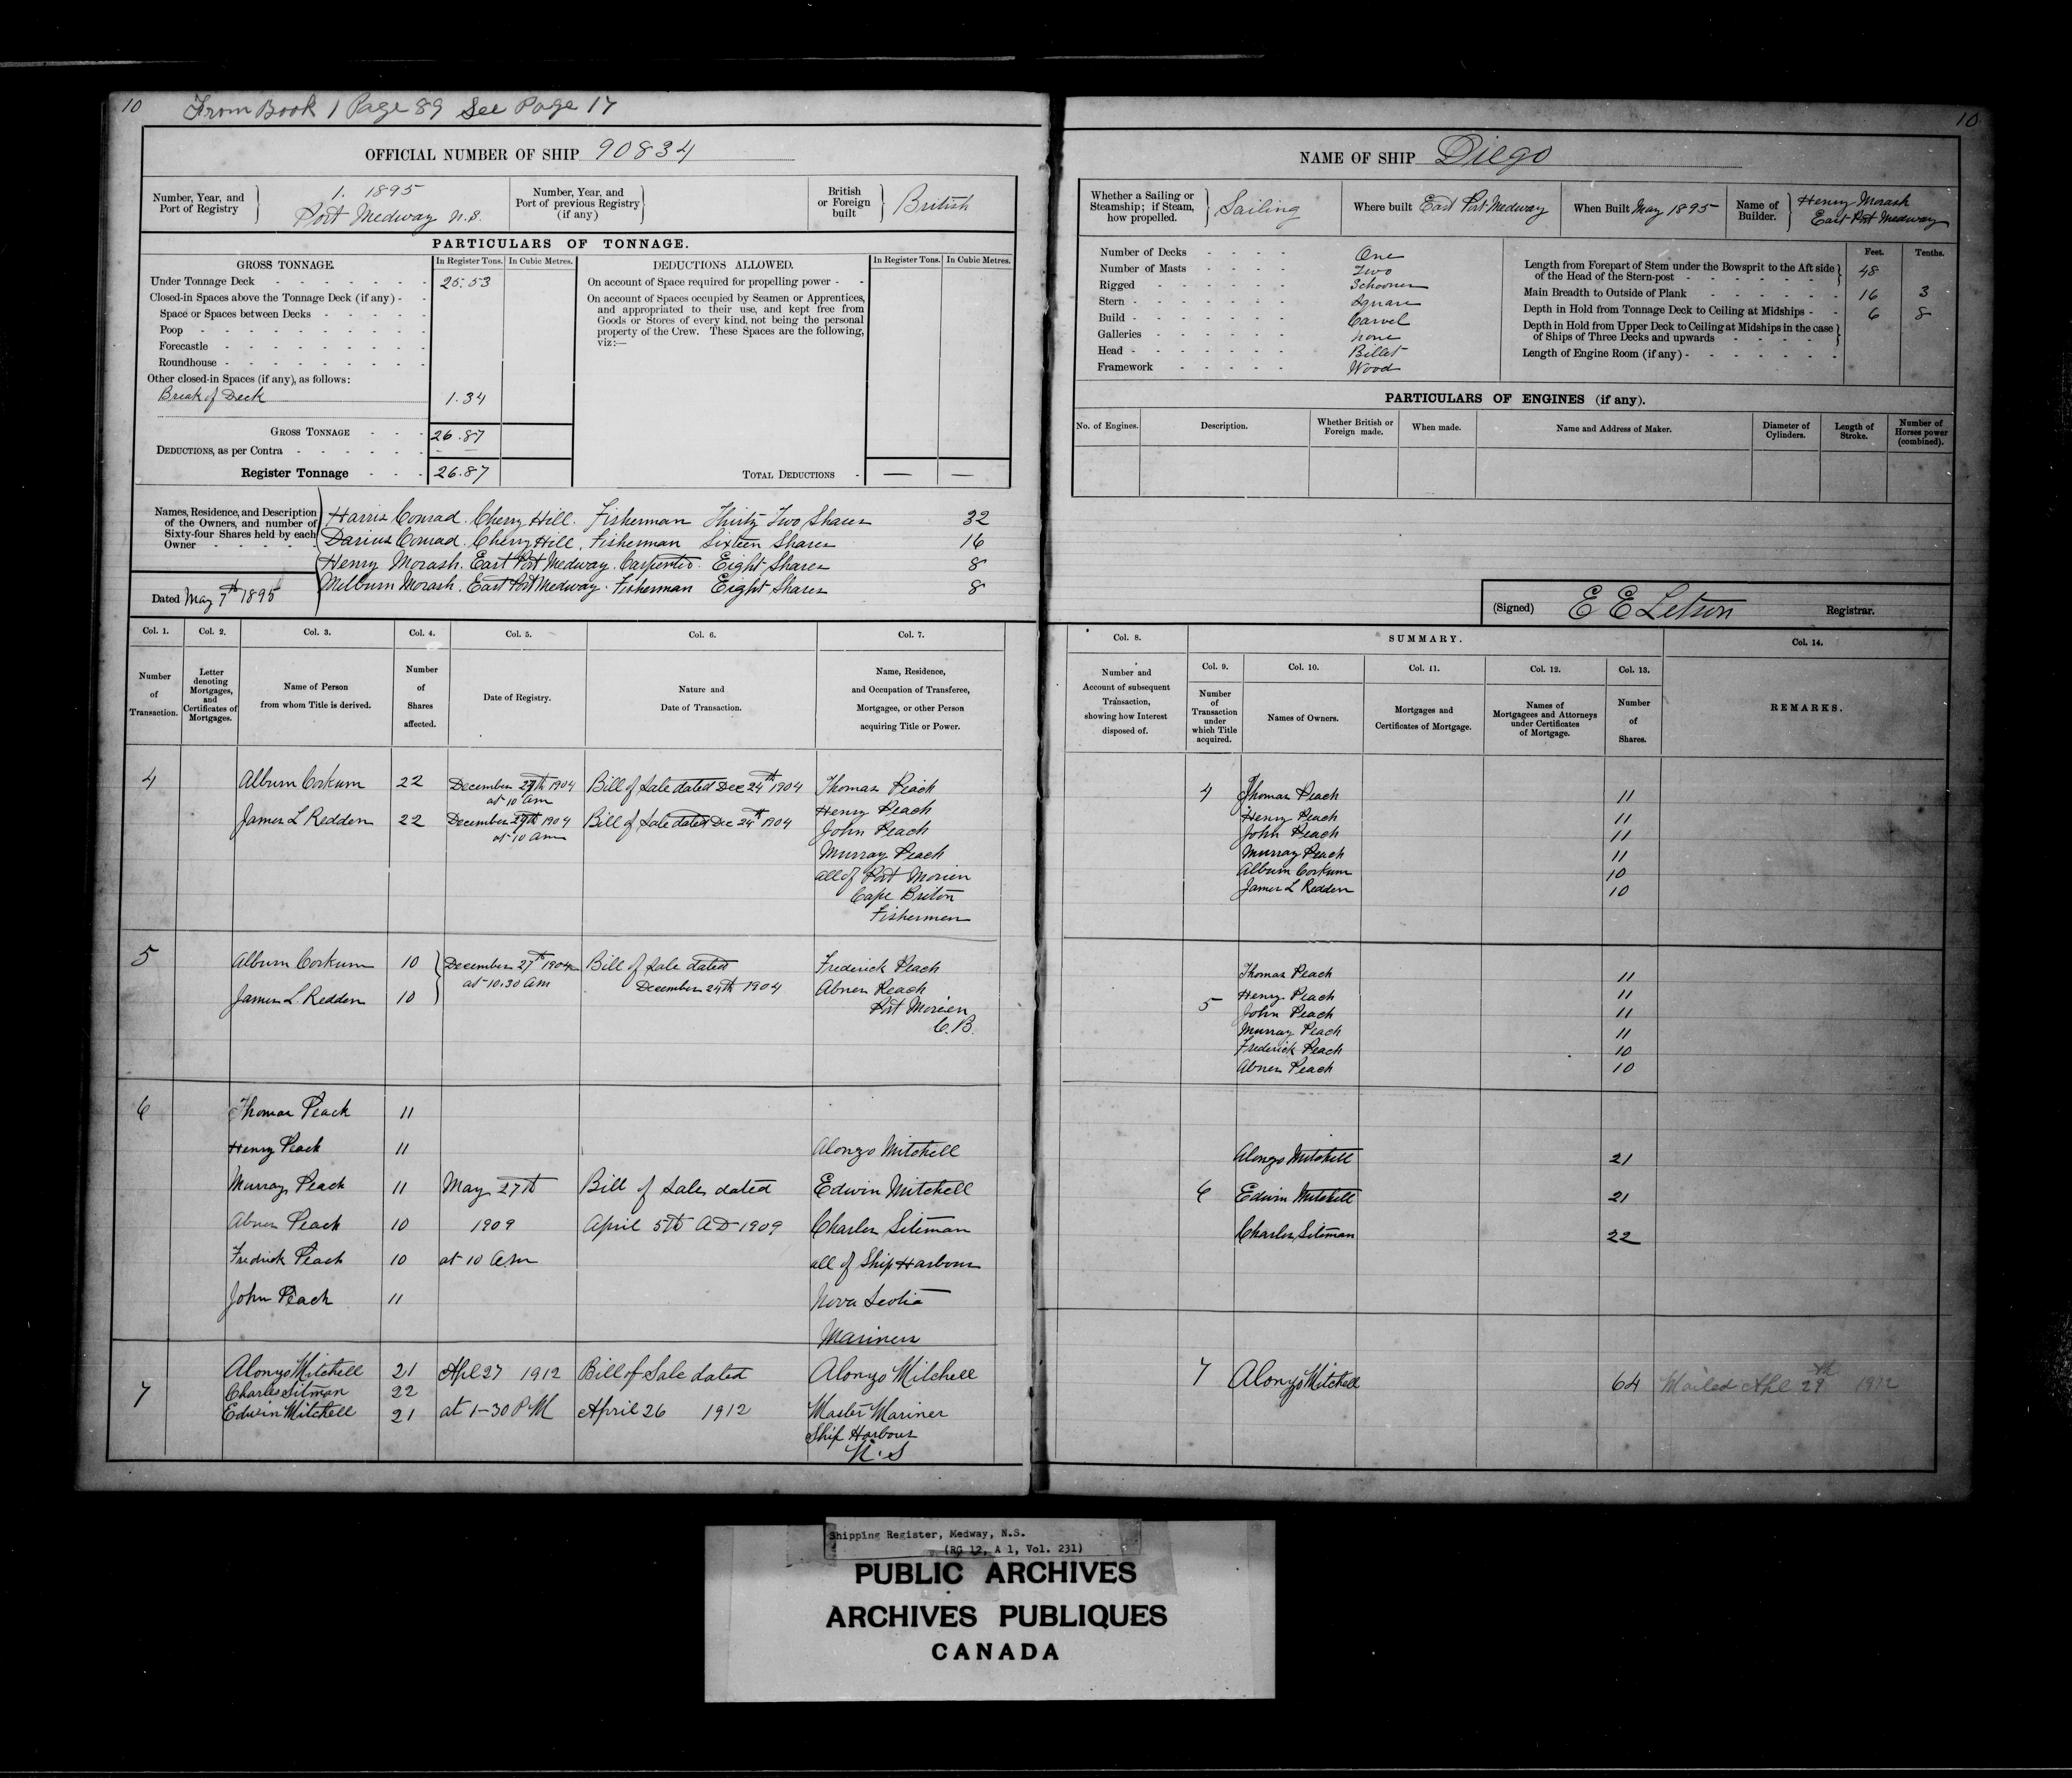 10 From Book 1 Page 89 See Page 17
OFFICIAL NUMBER OF SHIP 90834
Number, Year, and Port of Registry } 1. 1895 Port Medway N.S.
Number, Year, and Port of previous Registry (if any) }
British or Foreign built } British
PARTICULARS OF TONNAGE.
GROSS TONNAGE. In Register Tons. In Cubic Metres.
Under Tonnage Deck 25.53
Closed-in Spaces above the Tonnage Deck (if any)
Space or Spaces between Decks
Poop
Forecastle
Roundhouse
Other closed-in Spaces (if any), as follows:
Break of Deck 1.34
GROSS TONNAGE 26.87
DEDUCTIONS, as per Contra - -
Register Tonnage 26.87
DEDUCTIONS ALLOWED. In Register Tons. In Cubic Metres.
On account of Space required for propelling power
On account of Spaces occupied by Seamen or Apprentices,
and appropriated to their use, and kept free from
Goods or Stores of every kind, not being the personal
property of the Crew. These Spaces are the following,
viz:—
TOTAL DEDUCTIONS — —
Names, Residence, and Description
of the Owners, and number of
Sixty-four Shares held by each
Owner
Harris Conrad. Cherry Hill. Fisherman Thirty Two Shares 32
Darius Conrad. Cherry Hill. Fisherman Sixteen Shares 16
Henry Morash. East Port Medway. Carpenter. Eight Shares 8
Milburn Morash. East Port Medway. Fisherman Eight Shares 8
Dated May 7th 1895
Col. 1. Col. 2. Col. 3. Col. 4. Col. 5. Col. 6. Col. 7.
Number of Transaction.
Letter denoting Mortgages, and Certificates of Mortgages.
Name of Person from whom Title is derived.
Number of Shares affected.
Date of Registry.
Nature and Date of Transaction.
Name, Residence, and Occupation of Transferee, Mortgagee, or other Person acquiring Title or Power.
4 Album Corkum 22 December 27th 1904 Bill of Sale dated Dec 24th 1904 Thomas Peach
at 10 am
James L Redden 22 December 27th 1904 Bill of Sale dated Dec 24th 1904 Henry Peach
at 10 am John Peach
Murray Peach
all of Port Morien
Cape Briton
Fishermen
5 Album Corkum 10 December 27th 1904 Bill of Sale dated Frederick Peach
at 10.30 am December 24th 1904 Abner Peach
James L. Redden 10 Port Morien
C.B.
6 Thomas Peach 11
Henry Peach 11 Alonzo Mitchell
Murray Peach 11 May 27th Bill of Sale dated Edwin Mitchell
Abner Peach 10 1909 April 5th AD 1909 Charles Siteman
Fredrick Peach 10 at 10 a.m all of Ship Harbour
John Peach 11 Nova Scotia
Mariners
7 Alonzo Mitchell 21 Apl 27 1912 Bill of Sale dated Alonzo Mitchell
Charles Sitman 22
Edwin Mitchell 21 at 1-30 PM April 26 1912 Master Mariner
Ship Harbour
N.S
10
NAME OF SHIP Diego
Whether a Sailing or Steamship; if Steam, how propelled. } Sailing
Where built East Port Medway
When Built May 1895
Name of Builder. } Henry Morash East Port Medway
Number of Decks One
Number of Masts Two
Rigged Schooner
Stern Square
Build Carvel
Galleries none
Head Billet
Framework Wood
Feet. Tenths.
Length from Forepart of Stem under the Bowsprit to the Aft side
of the Head of the Stern-post 48
Main Breadth to Outside of Plank 16 3
Depth in Hold from Tonnage Deck to Ceiling at Midships 6 8
Depth in Hold from Upper Deck to Ceiling at Midships in the case
of Ships of Three Decks and upwards
Length of Engine Room (if any)
PARTICULARS OF ENGINES (if any).
No. of Engines. Description. Whether British or Foreign made. When made. Name and Address of Maker. Diameter of Cylinders. Length of Stroke. Number of Horses power (combined).
(Signed) E E Letson Registrar.
Col. 8. SUMMARY. Col. 14.
Col. 9. Col. 10. Col. 11. Col. 12. Col. 13.
Number and Account of subsequent Transaction, showing how Interest disposed of.
Number of Transaction under which Title acquired.
Names of Owners.
Mortgages and Certificates of Mortgage.
Names of Mortgagees and Attorneys under Certificates of Mortgage.
Number of Shares.
REMARKS.
4 Thomas Peach 11
Henry Peach 11
John Peach 11
Murray Peach 11
Album Corkum 10
James L Redden 10
Thomas Peach 11
5 Henry Peach 11
John Peach 11
Murray Peach 11
Frederick Peach 10
Abner Peach 10
Alonzo Mitchell 21
6 Edwin Mitchell 21
Charles Siteman 22
7 Alonzo Mitchell 64 Mailed Apl 29th 1912
Shipping Register, Medway, N.S.
(RG 12, A 1, Vol. 231)
PUBLIC ARCHIVES
ARCHIVES PUBLIQUES
CANADA